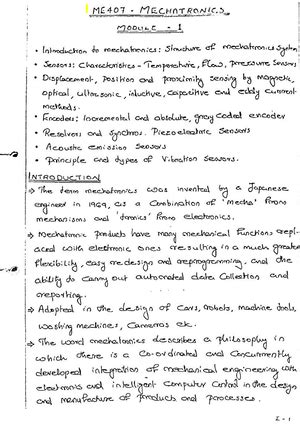 ME407 - MECHATRONICS
MODULE - 1
• Introduction to mechatronics: Structure of mechatronics System
• Sensors: Characteristics - Temperature, flow, pressure sensors
• Displacement, position and proximity sensing by magnetic,
optical, ultrasonic, inductive, capacitive and eddy current
methods.
• Encoders: Incremental and absolute, gray coded encoder
• Resolvers and synchros. Piezoelectric Sensors
• Acoustic emission Sensors
• Principle and types of Vibration Sensors.
INTRODUCTION
⇒ The term mechatronics was invented by a Japanese
engineer in 1969, as a combination of 'mecha' from
mechanisms and 'tronics' from electronics.
⇒ Mechatronic products have many mechanical functions repl-
aced with electronic ones resulting in a much greater
flexibility, easy redesign and reprogramming, and the
ability to carry out automated data collection and
reporting.
⇒ Adopted in the design of Cars, robots, machine tools,
washing machines, Cameras etc.
⇒ The word mechatronics describes a philosophy in
which there is a co-ordinated and concurrently
developed integration of mechanical engineering with
electronics and intelligent computer control in the design
and manufacture of products and processes.
1 - 1